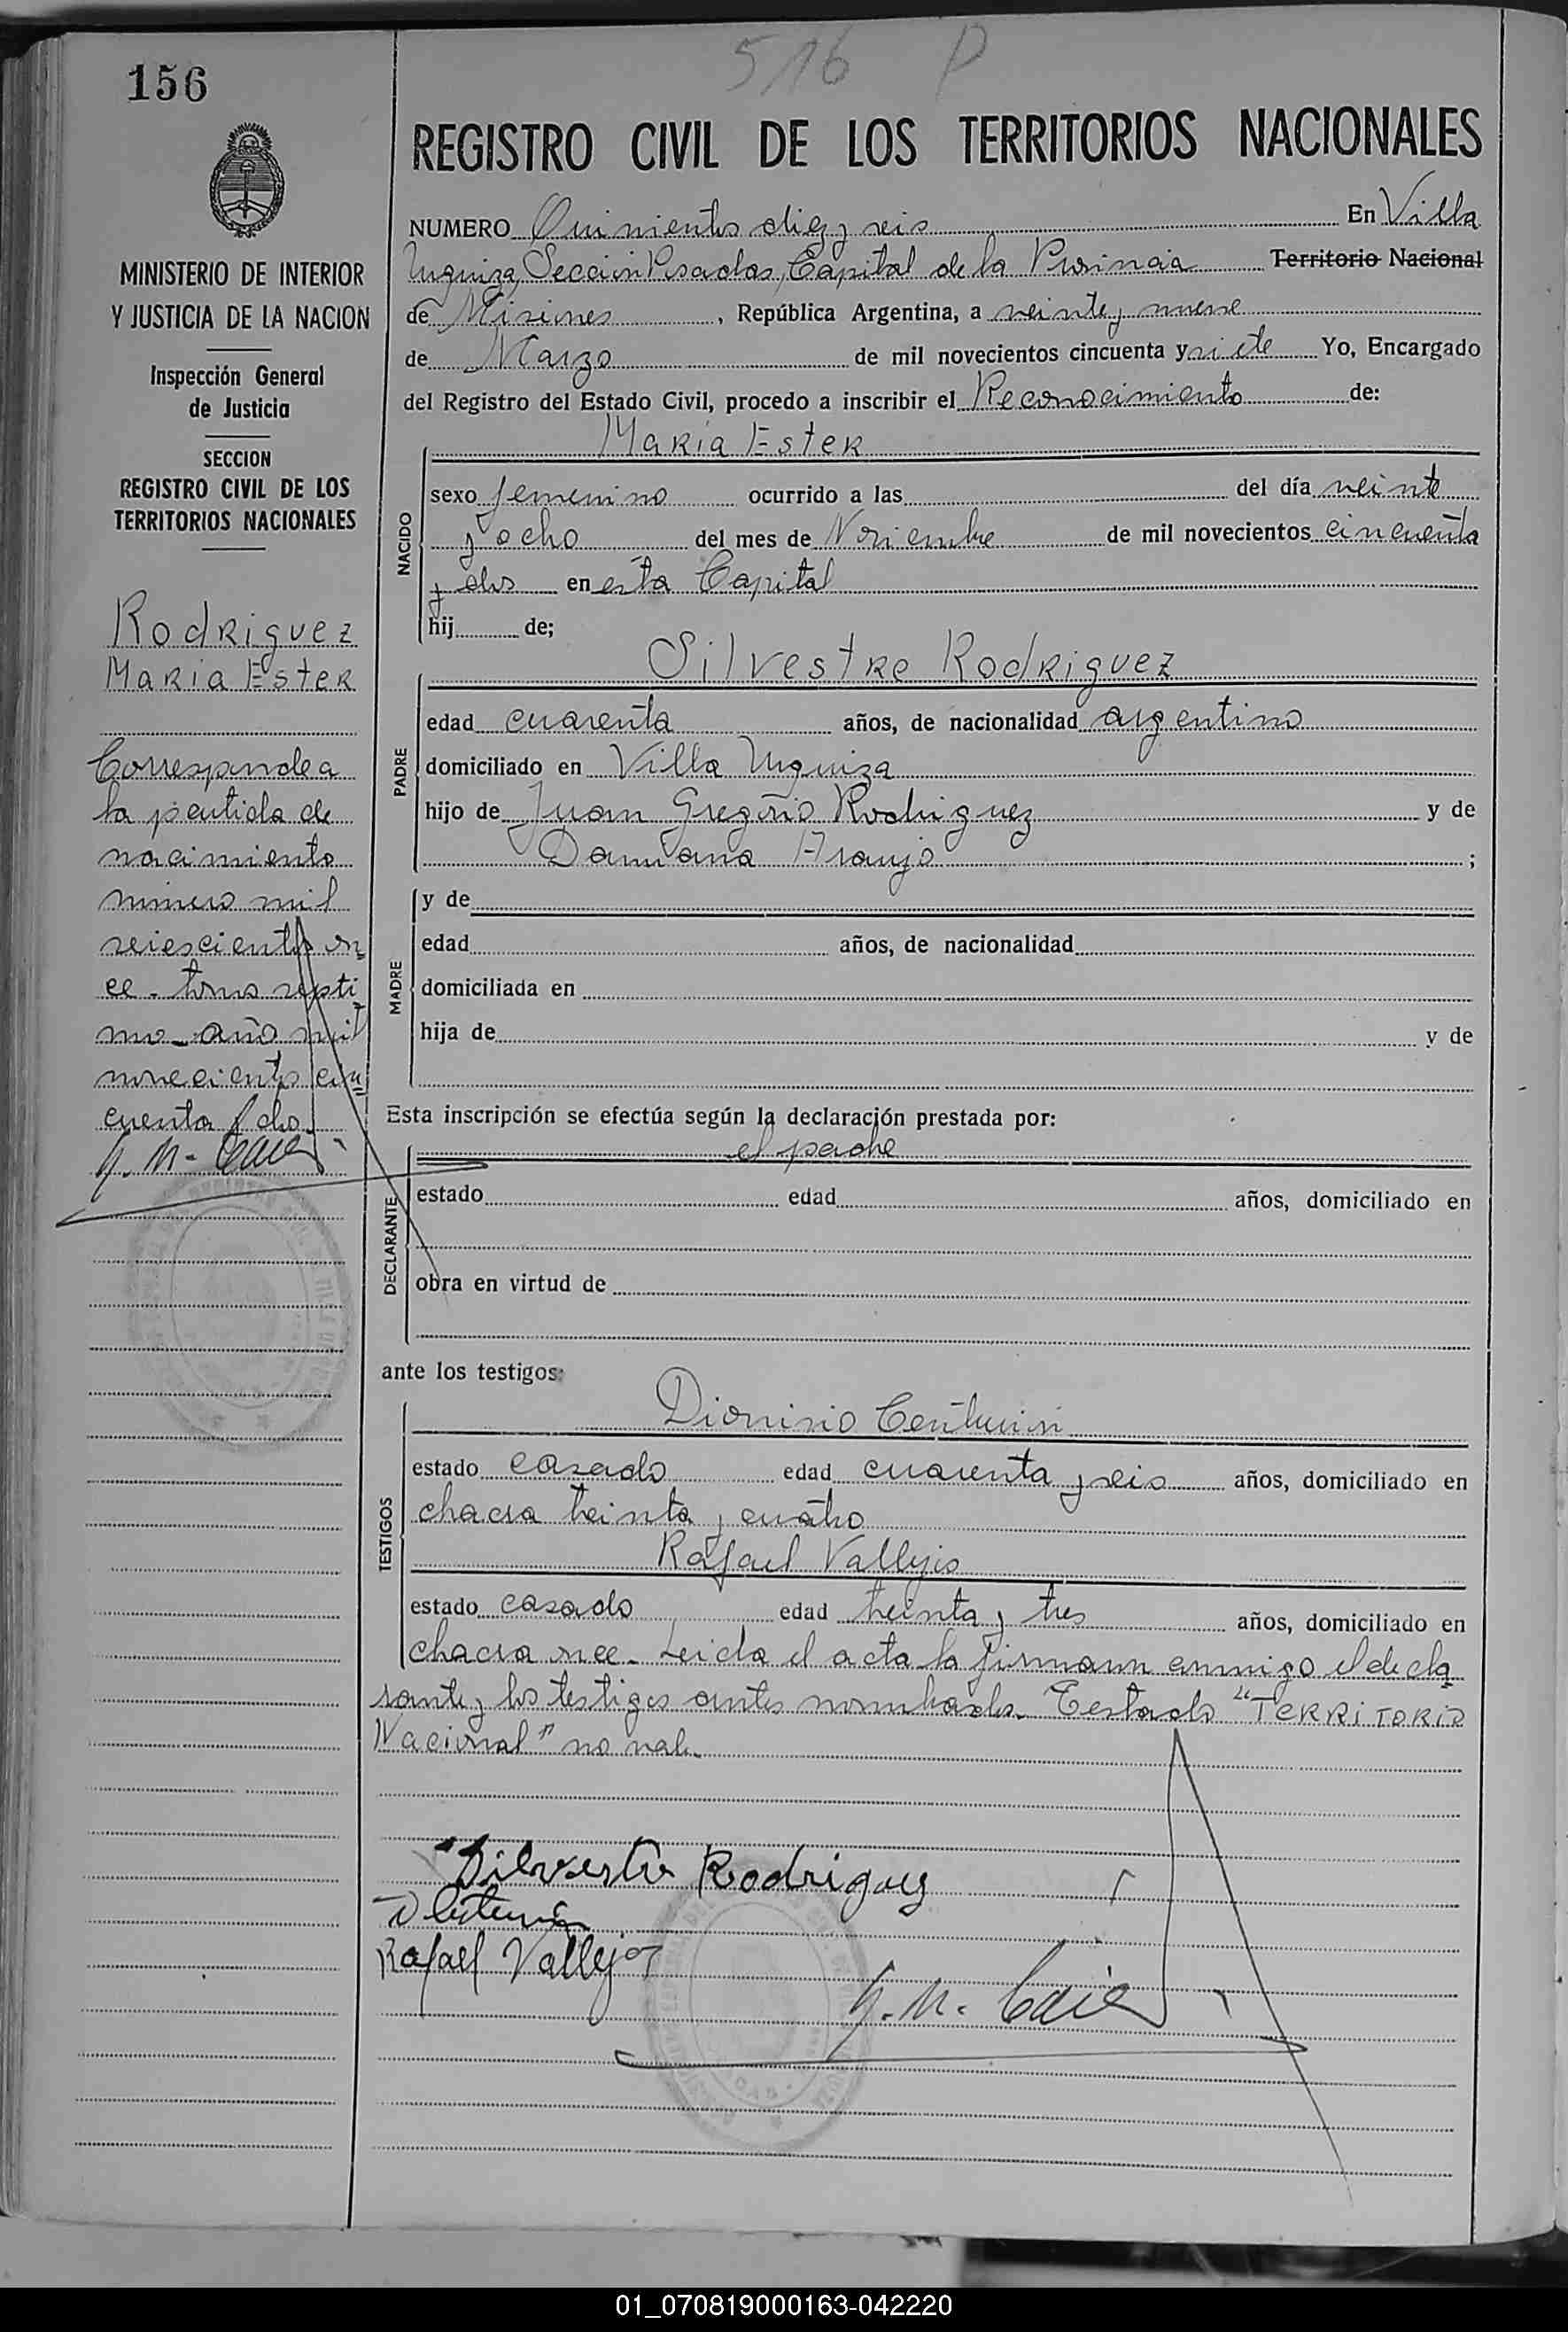 516 P
156
REGISTRO CIVIL DE LOS TERRITORIOS NACIONALES
MINISTERIO DE INTERIOR
Y JUSTICIA DE LA NACION
Inspección General
de Justicia
SECCION
REGISTRO CIVIL DE LOS
TERRITORIOS NACIONALES
Rodriguez
Maria Ester
Corresponde a
la partida de
nacimiento
número mil
seiescientos on
ce - tomo septi
mo - año mil
novecientos cin
cuenta y dos
NUMERO Quinientos diez y seis En Villa
Urquiza, Sección Posadas, Capital de la Provincia Territorio Nacional
de Misiones, República Argentina, a veinte y nueve
de Marzo de mil novecientos cincuenta y siete Yo, Encargado
del Registro del Estado Civil, procedo a inscribir el Reconocimiento de:
Maria Ester
NACIDO
sexo femenino ocurrido a las del día veinte
y ocho del mes de Noviembre de mil novecientos cincuenta
y dos en esta Capital
hij de;
Silvestre Rodriguez
PADRE
edad cuarenta años, de nacionalidad argentino
domiciliado en Villa Urquiza
hijo de Juan Gregorio Rodriguez y de
Damiana Araujo ;
MADRE
y de
edad años, de nacionalidad
domiciliada en
hija de y de
Esta inscripción se efectúa según la declaración prestada por:
el padre
DECLARANTE
estado edad años, domiciliado en
obra en virtud de
ante los testigos:
Dionisio Centurión
TESTIGOS
estado casado edad cuarenta y seis años, domiciliado en
chacra treinta y cuatro
Rafael Vallejos
estado casado edad treinta y tres años, domiciliado en
chacra once. Leida el acta la firmann conmigo el decla
rante y los testigos antes nombrados. Testado "TERRITORIO
Nacional" no vale.
Silvestre Rodriguez
Rafael Vallejos
01_070819000163-042220